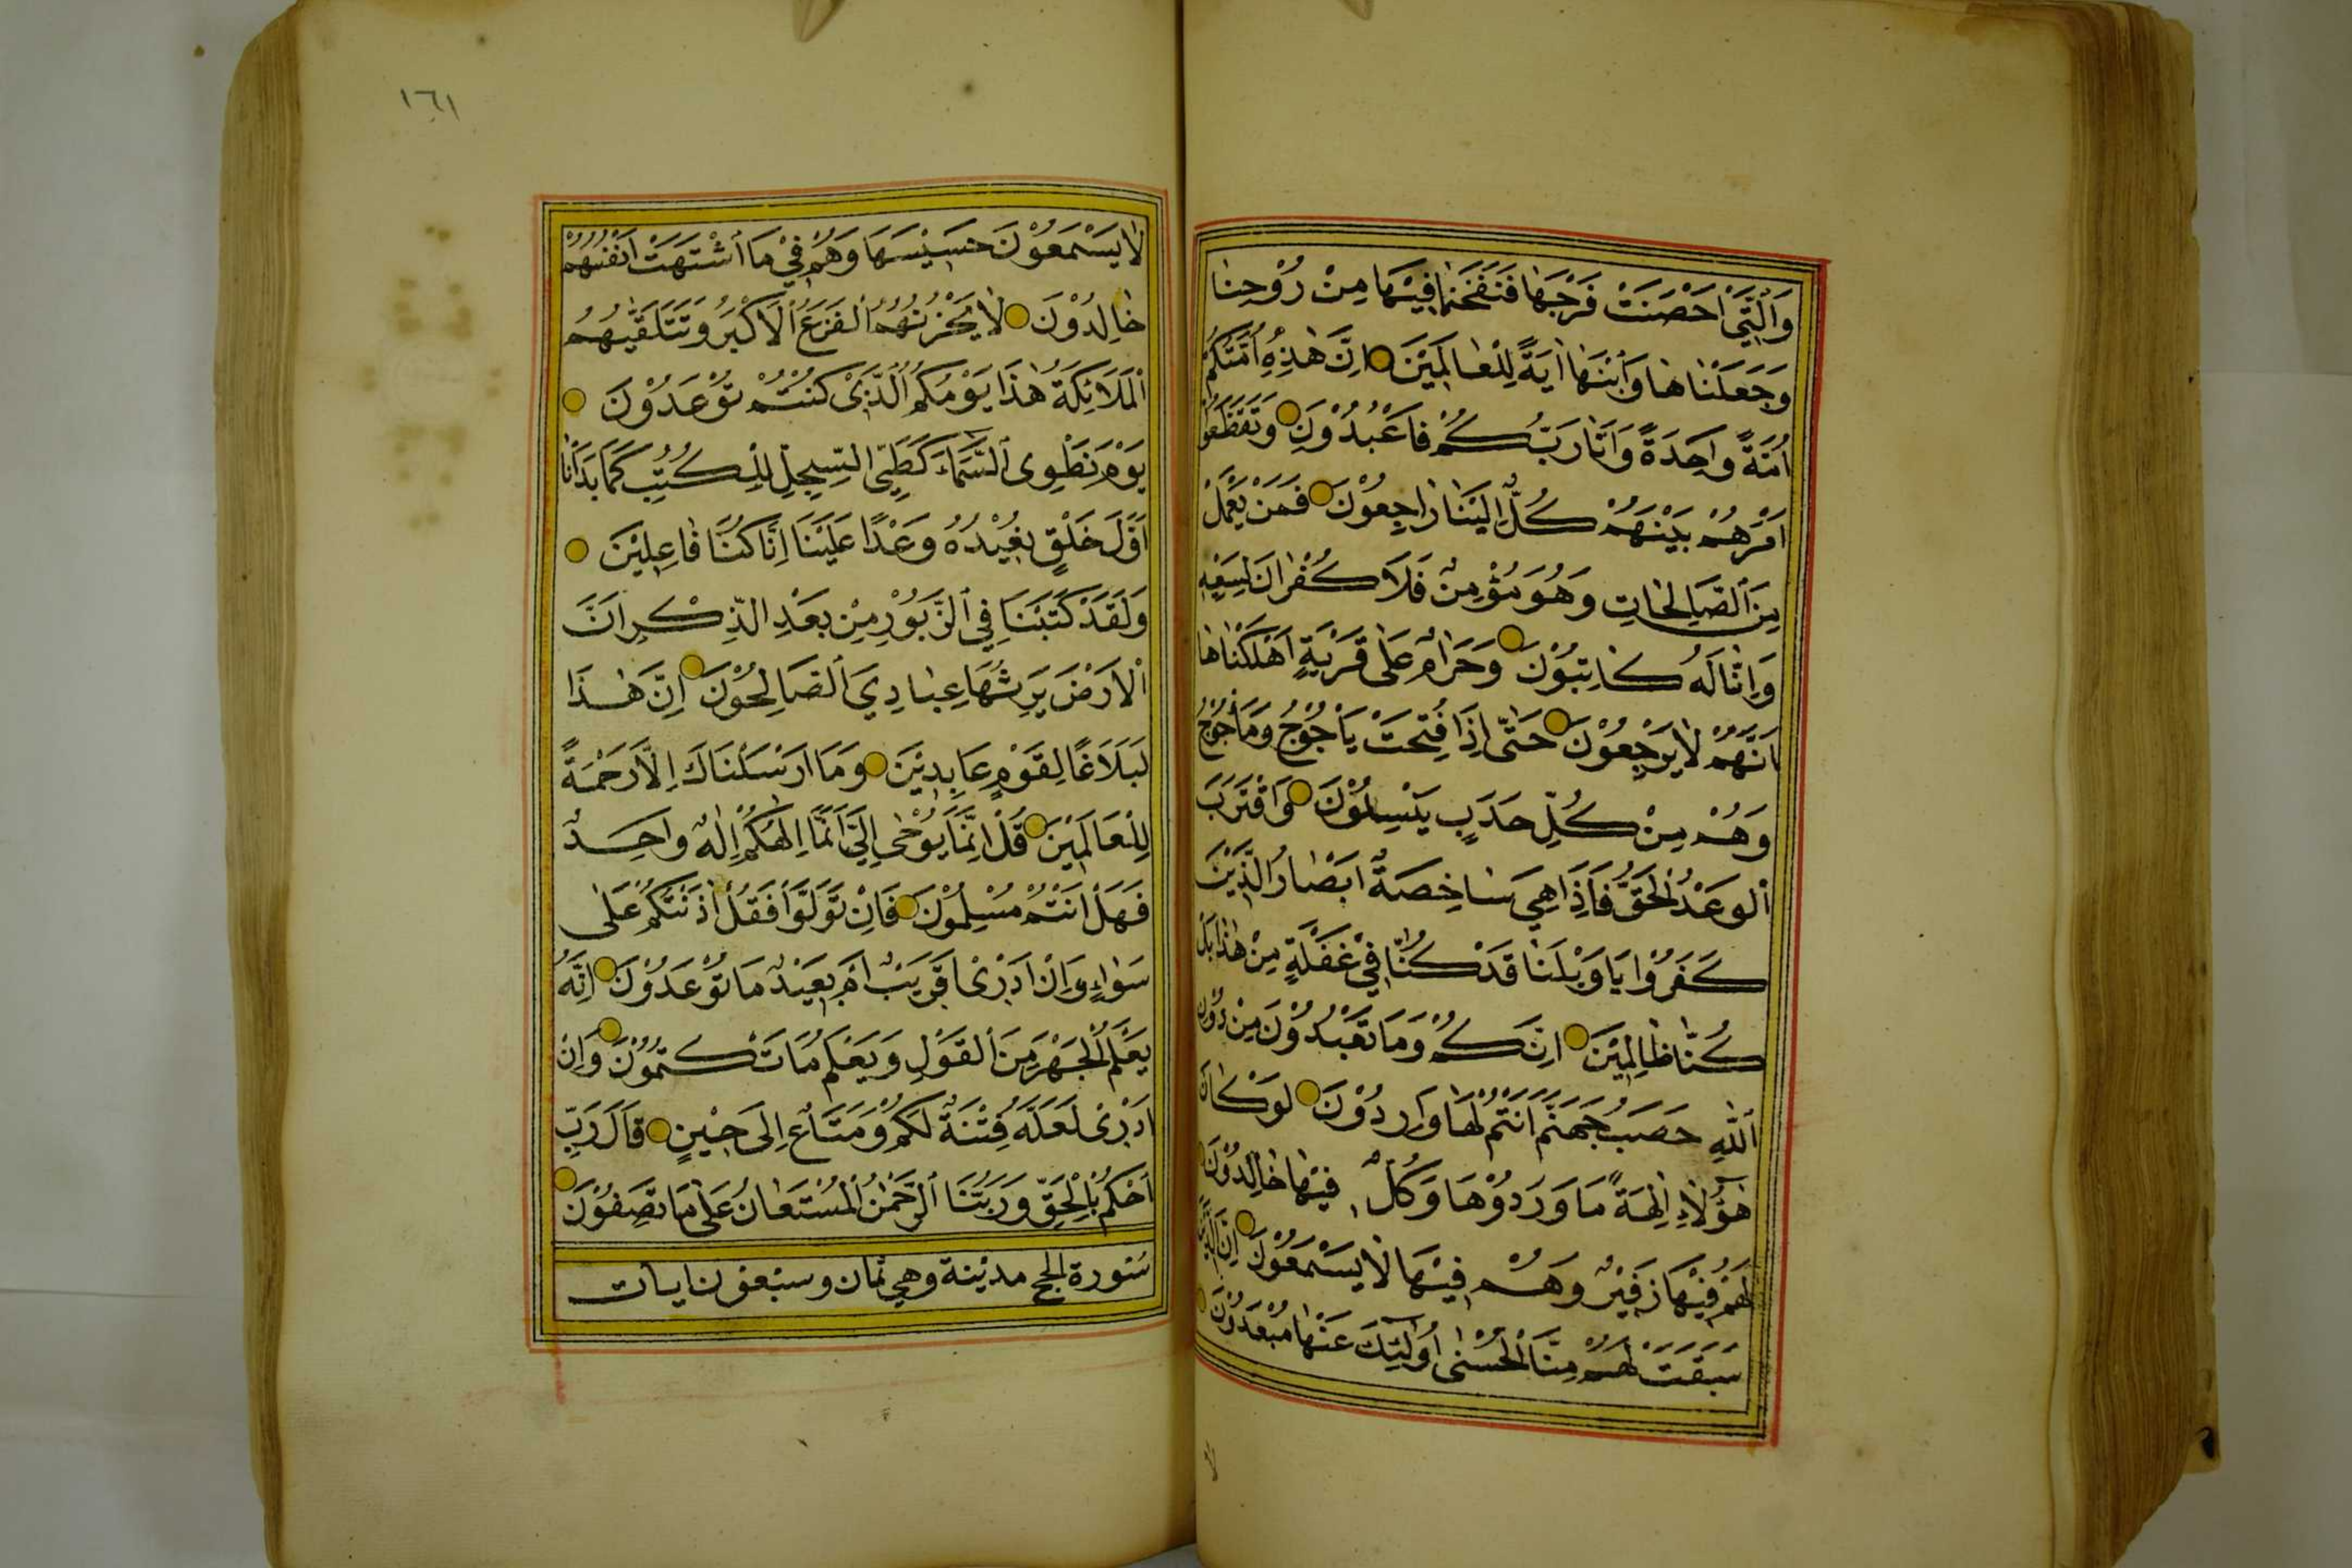 وَالَّتِي أَحْصَنَتْ فَرْجَهَا فَنَفَخْنَا فِيْهَا مِنْ رُوْحِنَا
وَجَعَلْنَاهَا وَابْنَهَا اٰيَةً لِلْعَالَمِيْنَ اِنَّ هٰذِهِ اُمَّتُكُمْ
اُمَّةً وَاحِدَةً وَاَنَا رَبُّكُمْ فَاعْبُدُوْنِ وَتَقَطَّعُوا
اَمْرَهُمْ بَيْنَهُمْ كُلٌّ اِلَيْنَا رَاجِعُوْنَ فَمَنْ يَعْمَلْ
مِنَ الصَّالِحَاتِ وَهُوَ مُؤْمِنٌ فَلَا كُفْرَانَ لِسَعْيِهِ
وَاِنَّا لَهُ كَاتِبُوْنَ وَحَرَامٌ عَلٰى قَرْيَةٍ اَهْلَكْنَاهَا
اَنَّهُمْ لَا يَرْجِعُوْنَ حَتّٰى اِذَا فُتِحَتْ يَأْجُوْجُ وَمَأْجُوْجُ
وَهُمْ مِنْ كُلِّ حَدَبٍ يَنْسِلُوْنَ وَاقْتَرَبَ
الْوَعْدُ الْحَقُّ فَاِذَا هِيَ شَاخِصَةٌ اَبْصَارُ الَّذِيْنَ
كَفَرُوْا يَا وَيْلَنَا قَدْ كُنَّا فِيْ غَفْلَةٍ مِنْ هٰذَا بَلْ
كُنَّا ظَالِمِيْنَ اِنَّكُمْ وَمَا تَعْبُدُوْنَ مِنْ دُوْنِ
اللّٰهِ حَصَبُ جَهَنَّمَ اَنْتُمْ لَهَا وَارِدُوْنَ لَوْ كَانَ
هٰؤُلَاءِ اٰلِهَةً مَا وَرَدُوْهَا وَكُلٌّ فِيْهَا خَالِدُوْنَ
لَهُمْ فِيْهَا زَفِيْرٌ وَهُمْ فِيْهَا لَا يَسْمَعُوْنَ اِنَّ الَّذِيْنَ
سَبَقَتْ لَهُمْ مِنَّا الْحُسْنٰى اُولٰئِكَ عَنْهَا مُبْعَدُوْنَ
١٦١
لَا يَسْمَعُوْنَ حَسِيْسَهَا وَهُمْ فِيْ مَا اشْتَهَتْ اَنْفُسُهُمْ
خَالِدُوْنَ لَا يَحْزُنُهُمُ الْفَزَعُ الْاَكْبَرُ وَتَتَلَقّٰيهُمُ
الْمَلَائِكَةُ هٰذَا يَوْمُكُمُ الَّذِيْ كُنْتُمْ تُوْعَدُوْنَ
يَوْمَ نَطْوِى السَّمَاءَ كَطَيِّ السِّجِلِّ لِلْكُتُبِ كَمَا بَدَاْنَا
اَوَّلَ خَلْقٍ نُعِيْدُهُ وَعْدًا عَلَيْنَا اِنَّا كُنَّا فَاعِلِيْنَ
وَلَقَدْ كَتَبْنَا فِي الزَّبُوْرِ مِنْ بَعْدِ الذِّكْرِ اَنَّ
الْاَرْضَ يَرِثُهَا عِبَادِيَ الصَّالِحُوْنَ اِنَّ هٰذَا
لَبَلَاغًا لِقَوْمٍ عَابِدِيْنَ وَمَا اَرْسَلْنَاكَ اِلَّا رَحْمَةً
لِلْعَالَمِيْنَ قُلْ اِنَّمَا يُوْحٰى اِلَيَّ اَنَّمَا اِلٰهُكُمْ اِلٰهٌ وَاحِدٌ
فَهَلْ اَنْتُمْ مُسْلِمُوْنَ فَاِنْ تَوَلَّوْا فَقُلْ اٰذَنْتُكُمْ عَلٰى
سَوَاءٍ وَاِنْ اَدْرِيْ اَقَرِيْبٌ اَمْ بَعِيْدٌ مَا تُوْعَدُوْنَ اِنَّهُ
يَعْلَمُ الْجَهْرَ مِنَ الْقَوْلِ وَيَعْلَمُ مَا تَكْتُمُوْنَ وَاِنْ
اَدْرِيْ لَعَلَّهُ فِتْنَةٌ لَكُمْ وَمَتَاعٌ اِلٰى حِيْنٍ قَالَ رَبِّ
احْكُمْ بِالْحَقِّ وَرَبُّنَا الرَّحْمٰنُ الْمُسْتَعَانُ عَلٰى مَا تَصِفُوْنَ
سُورة الحج مدينة وهي ثمان وسبعون ايات